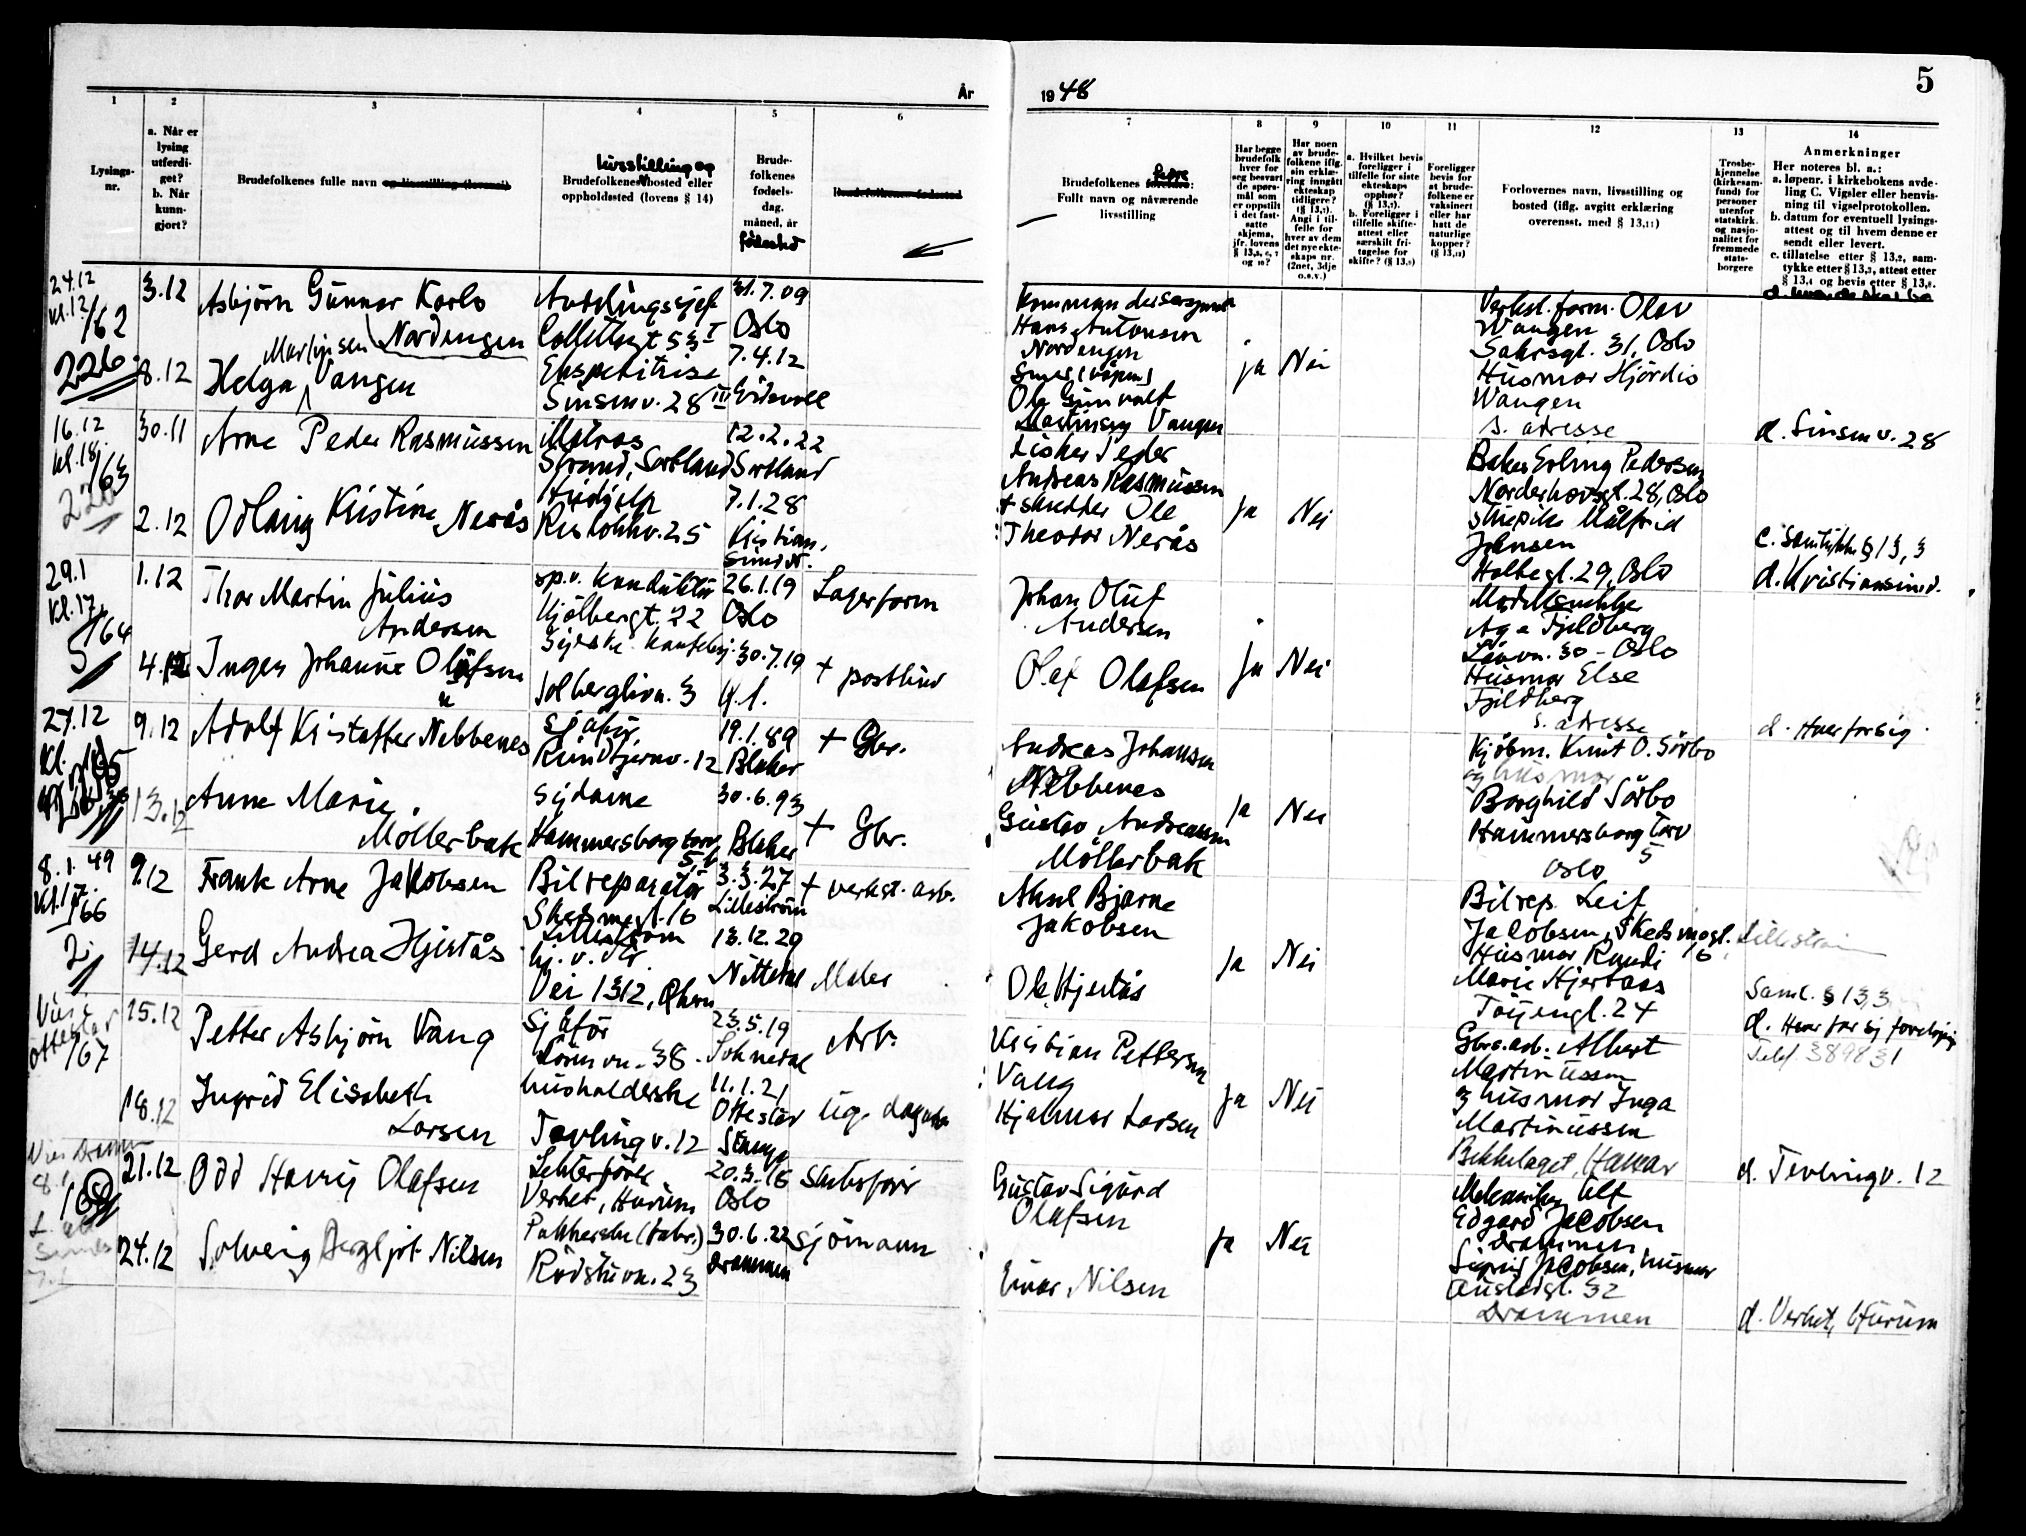 År
1948
5
1
2
3
4
5
6
7
8
9
10
11
12
13
14
Lysings-
nr.
a. Når er
lysing
utferdi-
get?
b. Når
kunn-
gjort?
Brudefolkenes fulle navn og livsstilling (lovens)
livsstilling og
Brudefolkenes bosted eller
oppholdssted (lovens § 14)
Brude-
folkenes
fødsels-
dag,
måned, år
fødested
Brudefolkenes fødested
Brudefolkenes
Fullt navn og nåværende
livsstilling
Har begge
brudefolk
hver for
seg besvart
de spørs-
mål som
er oppstilt
i det fast-
satte
skjema,
jfr. lovens
og 10?
Har noen
av brude-
folkene iflg.
sin erklæ-
ring inngått
ekteskap
tidligere?
Angi i til-
felle for
hver av dem
det nye ekte-
skaps nr.
(2net, 3dje
o.s.v.)
a. Hvilket bevis
foreligger i
tilfelle for siste
ekteskaps
opphør?
b. Foreligger i
tilfelle skifte-
attest eller
særskilt fri-
tagelse for
skifte?
Foreligger
bevis for
at brude-
folkene er
vaksinert
eller har
hatt de
naturlige
kopper?
Forlovernes navn, livsstilling og
bosted (iflg. avgitt erklæring
overensst. med § 13,11)
Trosbe-
kjennelse
(kirkesam-
fund) for
personer
utenfor
statskirk.
og nasjo-
nalitet for
fremmede
stats-
borgere
Anmerkninger
Her noteres bl. a.:
a. løpenr. i kirkebokens avde-
ling C. Vigsler eller henvis-
ning til vigselprotokollen.
b. datum for eventuell lysings-
attest og til hvem denne er
sendt eller levert.
c. tillatelse etter § 13,2, sam-
tykke etter § 13,3, attest etter
§ 13,4 og bevis etter § 13,8.
24.12
kl. 12/62
226
3.12
Asbjørn Gunnar Karlo
Nordengen
Avdelingssjef
Collettsgt 53 I
31.7.09
Oslo
Hans Antonsen
Nordengen
Verkst. form. Olav
Wangen
31, Oslo
8.12
Martinsen
Helga Vangen
Ekspeditrise
Sinsenv. 28 III
7.4.12
Eidsvoll
Ole Gunvald
Martinsen Vangen
ja
Nei
Husmor Hjördis
Wangen
s. adresse
d. Sinsenv. 28
16.12
kl. 18
/63
30.11
Arne Peder Rasmussen
Matros
Strand, Sortland
12.2.22
Sortland
Fisker Peder
Andreas Rasmussen
Baker Erling Pedersen
Norderhovsgt. 28, Oslo
2.12
Odlaug Kristine Nerås
Hushjelp
Risløkkv. 25
7.1.28
Kristian-
sund N.
+ skredder Ole
Theodor Nerås
ja
Nei
Målfrid
Johnsen
Holbegt. 29, Oslo
c. Samtykke § 13, 3
d. Kristiansund.
29.1
kl. 17
/64
5
1.12
Thor Martin Julius
Andersen
sp.v. konduktør
Kjølberggt. 22
26.1.19
Oslo
Lagerform
Johan Oluf
Andersen
Fjeldberg
30 - Oslo
4.12
Inger Johanne Olufsen
u
Solberglivn. 3
30.7.19
+ postbud
Olaf Olafsen
ja
Nei
Husmor Else
Fjeldberg
s. adresse
d. Hver for sig.
27.12
kl.
9.12
Adolf Kristoffer Nebbenes
Sjåfør
Rundtjernv. 12
19.1.89
Blaker
+ Gbr.
Andreas Johansen
Nebbenes
Kjøbm. Knut O. Sørbo
og husmor
Borghild Sørbo
13.12
Anne Marie
Møllerbakk
Hammersborg torv
30.6.93
Blaker
+ Gbr.
Gustav Andreassen
Møllerbak
ja
Nei
Hammersborg torv
5
Oslo
8.1.49
kl. 17.
/66
2
9.12
Frank Arne Jakobsen
Bilreparatør
Skedsmogt. 16
Lillestrøm
3.3.27
Lillestrøm
+ verkst. arb.
Aksel Bjarne
Jakobsen
Bilrep. Leif
Jacobsen, Skedsmogt.
16
Lillestrøm
14.12
Gerd Andrea Hjertås
Vei 1312,
13.12.29
Nittedal
Maler
Ole Hjertås
ja
Nei
Husmor Randi
Marie Hjertaas
Tøyengt. 24
Samt. § 13,3
d. Hver for sig foreløpig
Telef. 389831
Vies i
Ottestad
/67
15.12
Petter Asbjørn Vang
Sjåfør
Lørenvn. 38
23.5.19
Soknedal
Arb.
Kristian Pettersen
Vang
Gbr.arb. Albert
Martinussen
18.12
Ingrid Elisabeth
Larsen
husholderske
Tevlingv. 12
11.1.21
Ottestad
Stange
Hjalmar Larsen
ja
Nei
og husmor Inga
Martinussen
Bekkelaget, Hamar
d. Tevlingv. 12
Vies Drammen
8.1
21.12
Odd Harry Olafsen
Verket, Hurum
20.3.16
Oslo
Gustav Sigurd
Olafsen
Mekaniker Alf
Edgard Jacobsen
Drammen
24.12
Solveig Bergljot Nilsen
Pakkerske (fabr.)
Rødstuvn. 23
30.6.22
Drammen
Sjømann
Einar Nilsen
ja
Nei
Sigrid Jacobsen, husmor
32
Drammen
d. Verket, Hurum